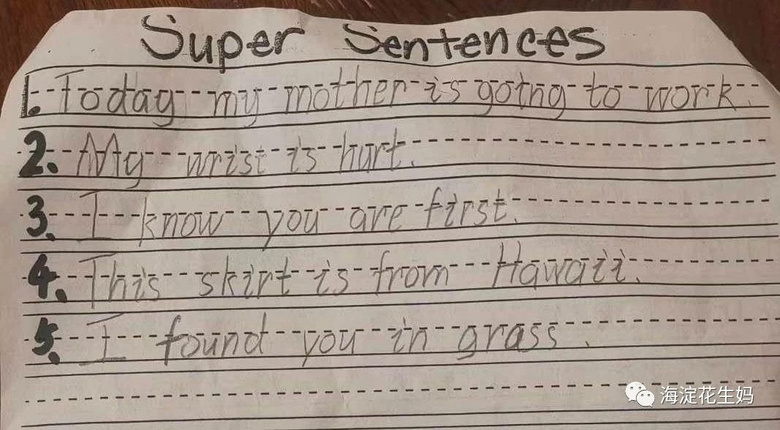 Super Sentences
1. Today my mother is going to work.
2. My wrist is hurt.
3. I know you are first.
4. This skirt is from Hawaii.
5. I found you in grass.
海淀花生妈